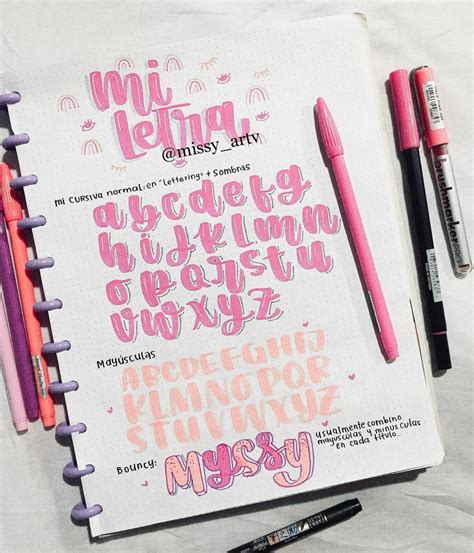 mi
letra
@missy_artv
mi cursiva normal: en "Lettering" + sombras
abcdefg
hijklmn
opqrstu
vwxyz
Mayúsculas
ABCDEFGHIJ
KLMNOPQR
STUVWXYZ
Bouncy:
Myssy
usualmente combino
mayusculas y minusculas
en cada título.
brushmaker